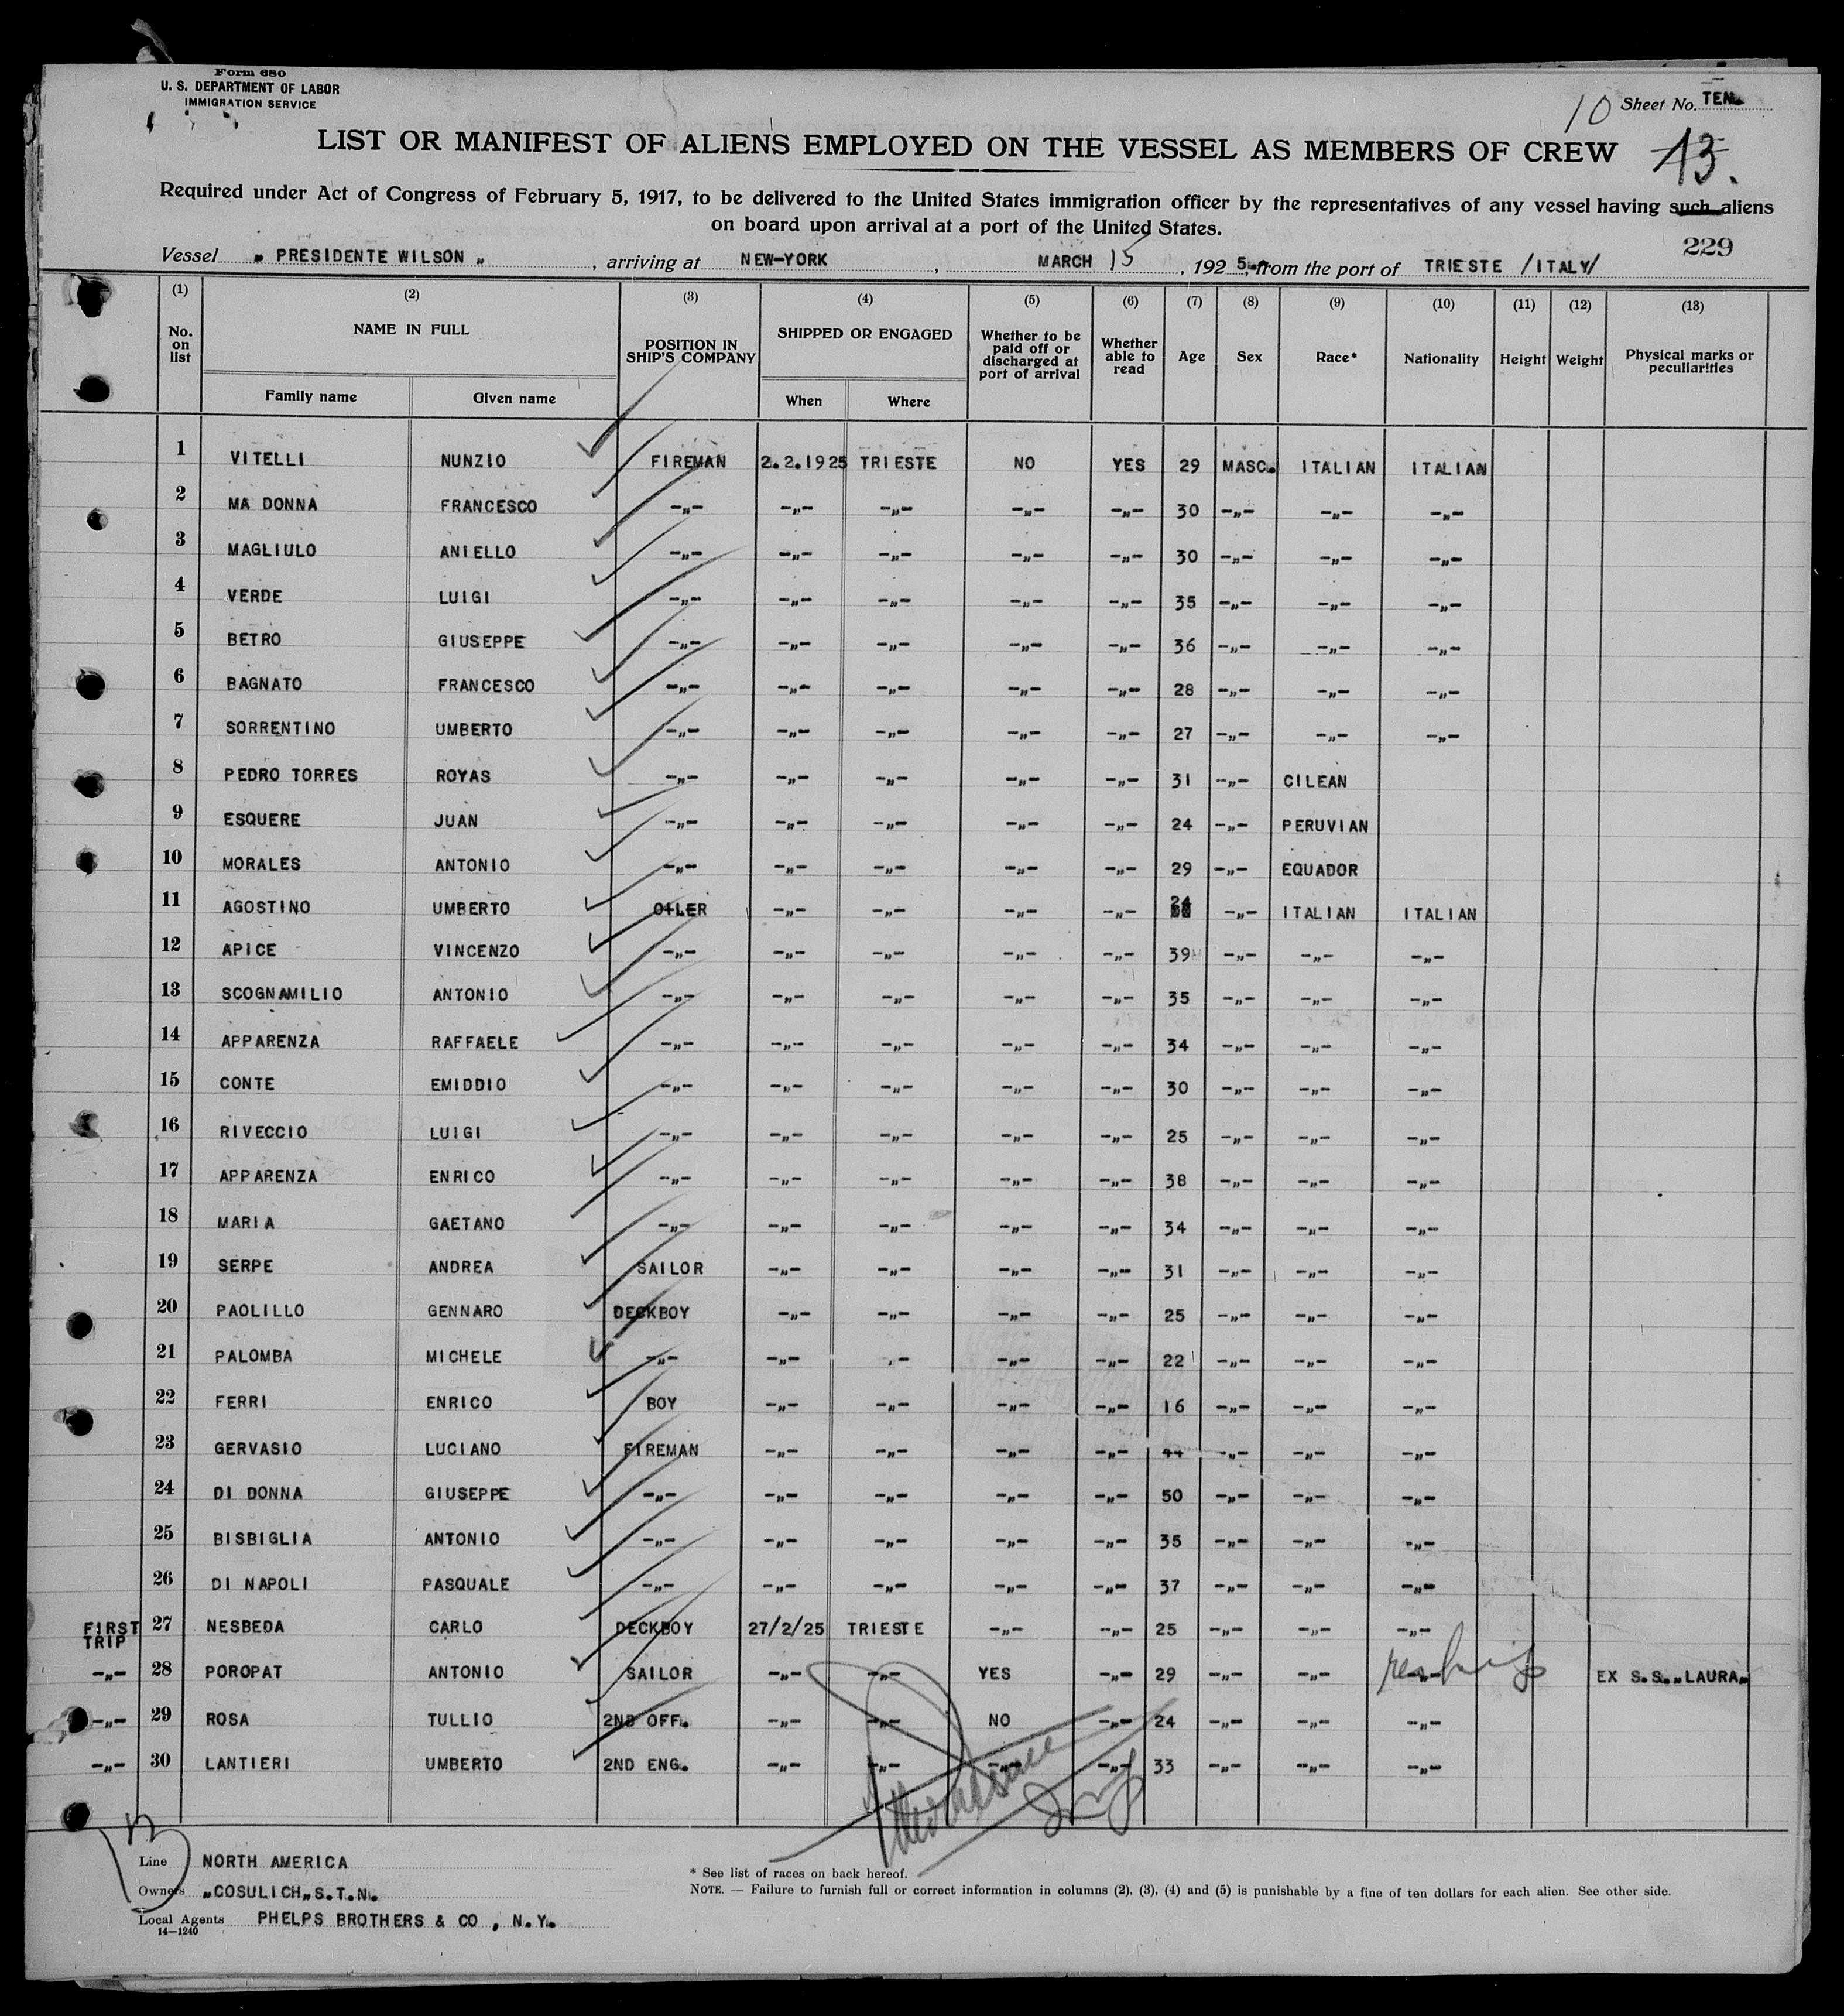 Form 680
U. S. DEPARTMENT OF LABOR
IMMIGRATION SERVICE
10 Sheet No. TEN.
LIST OR MANIFEST OF ALIENS EMPLOYED ON THE VESSEL AS MEMBERS OF CREW
13.
Required under Act of Congress of February 5, 1917, to be delivered to the United States immigration officer by the representatives of any vessel having such aliens
on board upon arrival at a port of the United States.
229
Vessel „ PRESIDENTE WILSON „ , arriving at NEW-YORK , MARCH 15 , 192 5, from the port of TRIESTE /ITALY/
(1) (2) (3) (4) (5) (6) (7) (8) (9) (10) (11) (12) (13)
No. on list NAME IN FULL POSITION IN SHIP'S COMPANY SHIPPED OR ENGAGED Whether to be paid off or discharged at port of arrival Whether able to read Age Sex Race* Nationality Height Weight Physical marks or peculiarities
Family name Given name When Where
1 VITELLI NUNZIO FIREMAN 2.2.1925 TRIESTE NO YES 29 MASC. ITALIAN ITALIAN
2 MA DONNA FRANCESCO -„- -„- -„- -„- -„- 30 -„- -„- -„-
3 MAGLIULO ANIELLO -„- -„- -„- -„- -„- 30 -„- -„- -„-
4 VERDE LUIGI -„- -„- -„- -„- -„- 35 -„- -„- -„-
5 BETRO GIUSEPPE -„- -„- -„- -„- -„- 36 -„- -„- -„-
6 BAGNATO FRANCESCO -„- -„- -„- -„- -„- 28 -„- -„- -„-
7 SORRENTINO UMBERTO -„- -„- -„- -„- -„- 27 -„- -„- -„-
8 PEDRO TORRES ROYAS -„- -„- -„- -„- -„- 31 -„- CILEAN
9 ESQUERE JUAN -„- -„- -„- -„- -„- 24 -„- PERUVIAN
10 MORALES ANTONIO -„- -„- -„- -„- -„- 29 -„- EQUADOR
11 AGOSTINO UMBERTO OILER -„- -„- -„- -„- 24 -„- ITALIAN ITALIAN
12 APICE VINCENZO -„- -„- -„- -„- -„- 39 -„- -„- -„-
13 SCOGNAMILIO ANTONIO -„- -„- -„- -„- -„- 35 -„- -„- -„-
14 APPARENZA RAFFAELE -„- -„- -„- -„- -„- 34 -„- -„- -„-
15 CONTE EMIDDIO -„- -„- -„- -„- -„- 30 -„- -„- -„-
16 RIVECCIO LUIGI -„- -„- -„- -„- -„- 25 -„- -„- -„-
17 APPARENZA ENRICO -„- -„- -„- -„- -„- 38 -„- -„- -„-
18 MARIA GAETANO -„- -„- -„- -„- -„- 34 -„- -„- -„-
19 SERPE ANDREA SAILOR -„- -„- -„- -„- 31 -„- -„- -„-
20 PAOLILLO GENNARO DECKBOY -„- -„- -„- -„- 25 -„- -„- -„-
21 PALOMBA MICHELE -„- -„- - -„- -„- 22 -„- -„- -„-
22 FERRI ENRICO BOY -„- -„- -„- -„- 16 -„- -„- -„-
23 GERVASIO LUCIANO FIREMAN -„- -„- -„- -„- 44 -„- -„- -„-
24 DI DONNA GIUSEPPE -„- -„- -„- -„- -„- 50 -„- -„- -„-
25 BISBIGLIA ANTONIO -„- -„- -„- -„- -„- 35 -„- -„- -„-
26 DI NAPOLI PASQUALE -„- -„- -„- -„- -„- 37 -„- -„- -„-
FIRST TRIP 27 NESBEDA CARLO DECKBOY 27/2/25 TRIESTE -„- -„- 25 -„- -„- -„-
-„- 28 POROPAT ANTONIO SAILOR -„- -„- YES -„- 29 -„- -„- -„- reship EX S.S.„LAURA„
-„- 29 ROSA TULLIO 2ND OFF. -„- -„- NO -„- 24 -„- -„- -„-
-„- 30 LANTIERI UMBERTO 2ND ENG. -„- -„- -„- -„- 33 -„- -„- -„-
13
Line NORTH AMERICA
Owners „COSULICH„S.T.N.
Local Agents PHELPS BROTHERS & CO , N.Y.
14—1240
* See list of races on back hereof.
NOTE. — Failure to furnish full or correct information in columns (2), (3), (4) and (5) is punishable by a fine of ten dollars for each alien. See other side.